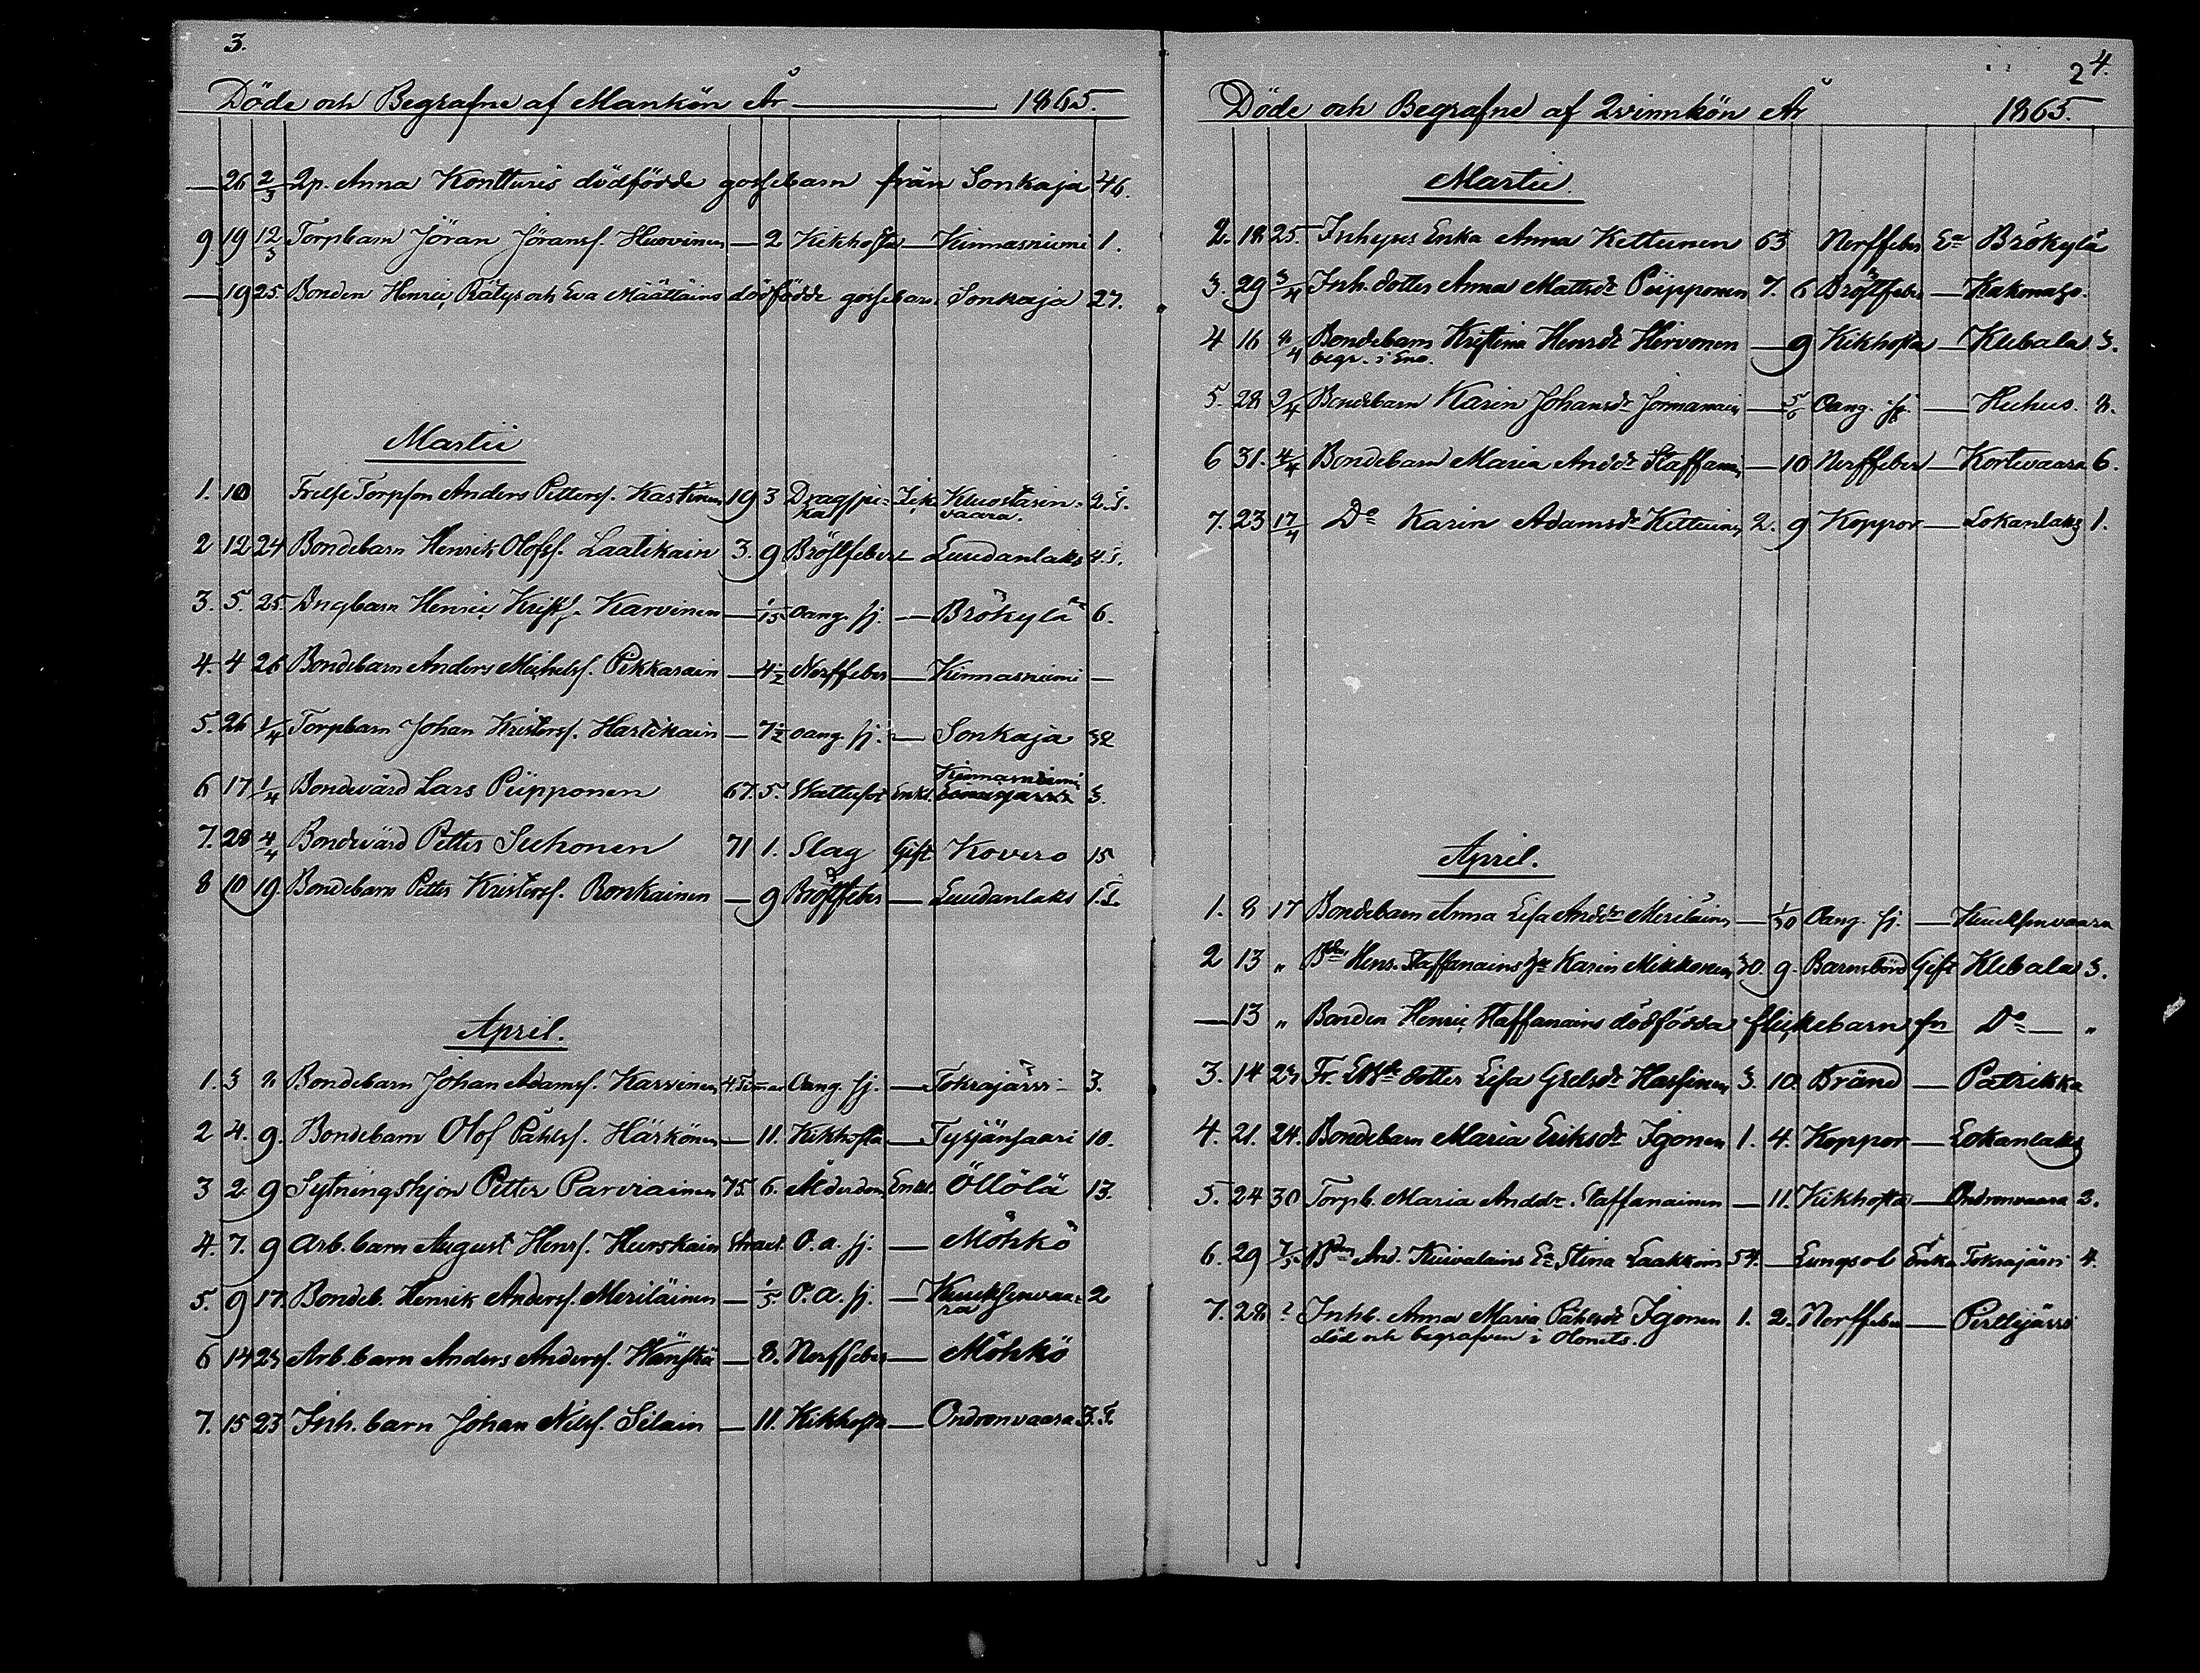 3.
Döde och Begrafne af Mankön År 1865.
— 26 2/3 Qp. Anna Kontturis dödfödde gossebarn från Sonkaja 46.
9 19 12/3 Torpbarn Jöran Jöranss. Huovinen — 2 Kikhosta — Kinnasniemi 1.
— 19 25. Bonden Henric Rätys och Eva Määttäins dödfödde gossebarn Sonkaja 27.
Martii
1. 10 Frelse Torpson Anders Petterss. Kastinen 19 3 Dragspi- Ick Kuostarin-
ka vaara. 2.T.
2 12 24 Bondebarn Henrik Olofss. Laatikain 3. 9 Bröstfeber — Luudanlaks 4.T.
3. 5. 25. Henric Kristss. Karvinen — 1/15 Oang. sj. — Brökylä 6.
4. 4 26 Bondebarn Anders Michelss. Pikkarain — 4 1/2 Nerffeber — Kinnasniemi —
5. 26 1/4 Torpbarn Johan Kristerss. Hartikain — 7 1/2 oang. sj. — Sonkaja 32
6 17 1/4 Bondevärd Lars Piipponen 67. 5. Enkl. Kinnasniemi 3.
7. 28 4/4 Bondevärd Petter Suhonen 71 1. Slag Gift Kovero 15
8 10 19 Bondebarn Petter Kristerss. Ronkainen — 9 Bröstfeber — Luudanlaks 1.T.
April.
1. 3 8 Bondebarn Johan Adamss. Karvinen 4.Timmar Oang. sj. — Tokrajärvi 3.
2 4. 9. Bondebarn Olof Påhlss. Härkönen — 11. Kikhosta — Tysjänsaari 10.
3 2. 9 Sytningshjon Petter Parviainen 75 6. Ålderdom Enkl. Öllölä 13.
4. 7. 9 Arb. barn August Henrs. Hurskain O. a. sj. — Möhkö
5. 9 17. Bondeb. Henrik Anderss. Meriläinen — 1/5. O. a. sj. — Kuuksenvaa-
ra 2
6 14 23 Arb. barn Anders Anderss. Hänskä — 8. Nerffeber — Möhkö
7. 15 23 Inh. barn Johan Nilss. Silain — 11. Kikhosta — Ondronvaara 3.T.
4.
2
Döde och Begrafne af Qvinnkön År 1865.
Martii.
2. 18 25. Inhyses Enka Anna Kettunen 63 Nerffeber Ea Brökylä
3. 29 3/4 Inh. dotter Anna Mattsdr Piipponen 7. 6 Bröstfeber — Kakonaho.
4 16 8/4 Bondebarn Kristina Henrsdr Hirvonen — 9 Kikhosta — Klebala 3.
begr. i Eno.
5. 28 2/4 Bondebarn Karin Johansdr Jormanain — 5/6 Oang. sj. — Huhus. 8.
6 31. 4/4 Bondebarn Maria Andsdr Staffanain — 10 Nerffeber — Kortevaara 6.
7. 23 17/4 Do Karin Adamsdr Kettuin 2. 9 Koppor — Lokanlaks 1.
April.
1. 8 17 Bondebarn Anna Lisa Andsdr Meriläin — 1/30 Oang. sj. — Kuuksenvaara
2 13 " Bden Henr. Staffanains Hu Karin Mikkonen 30. 9. Barnsbörd Gift Klebala 3.
— 13 " Bonden Henric Staffanains dödfödda flickebarn fn Do — "
3. 14 23 dotter Lisa Grelsdr Hassinen 3. 10. Bränd — Patrikka
4. 21. 24. Bondebarn Maria Eriksdr Igonen 1. 4. Koppor — Lokanlaks
5. 24 30 Torpb. Maria Andsdr Staffanainen — 11. Kikhosta — Ondronvaara 2.
6. 29 7/5. Bden And. Kuivalains Ea Stina Laakkoin 54. — Lungsot Enka Tokrajärvi 4.
7. 28 ? Inhb. Anna Maria Påhlsdr Igonen 1. 2. Nerffeber — Pirttijärvi
död och begrafven i Olonets.